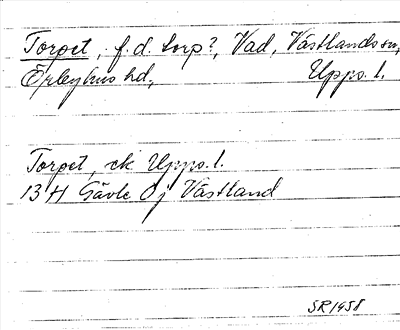 Torpet, f.d. torp?, Vad, Västlands sn,
Örbyhus hd, Upps. l.
Torpet, ek Upps. l.
13 H Gävle 0j Västland
SR 1958